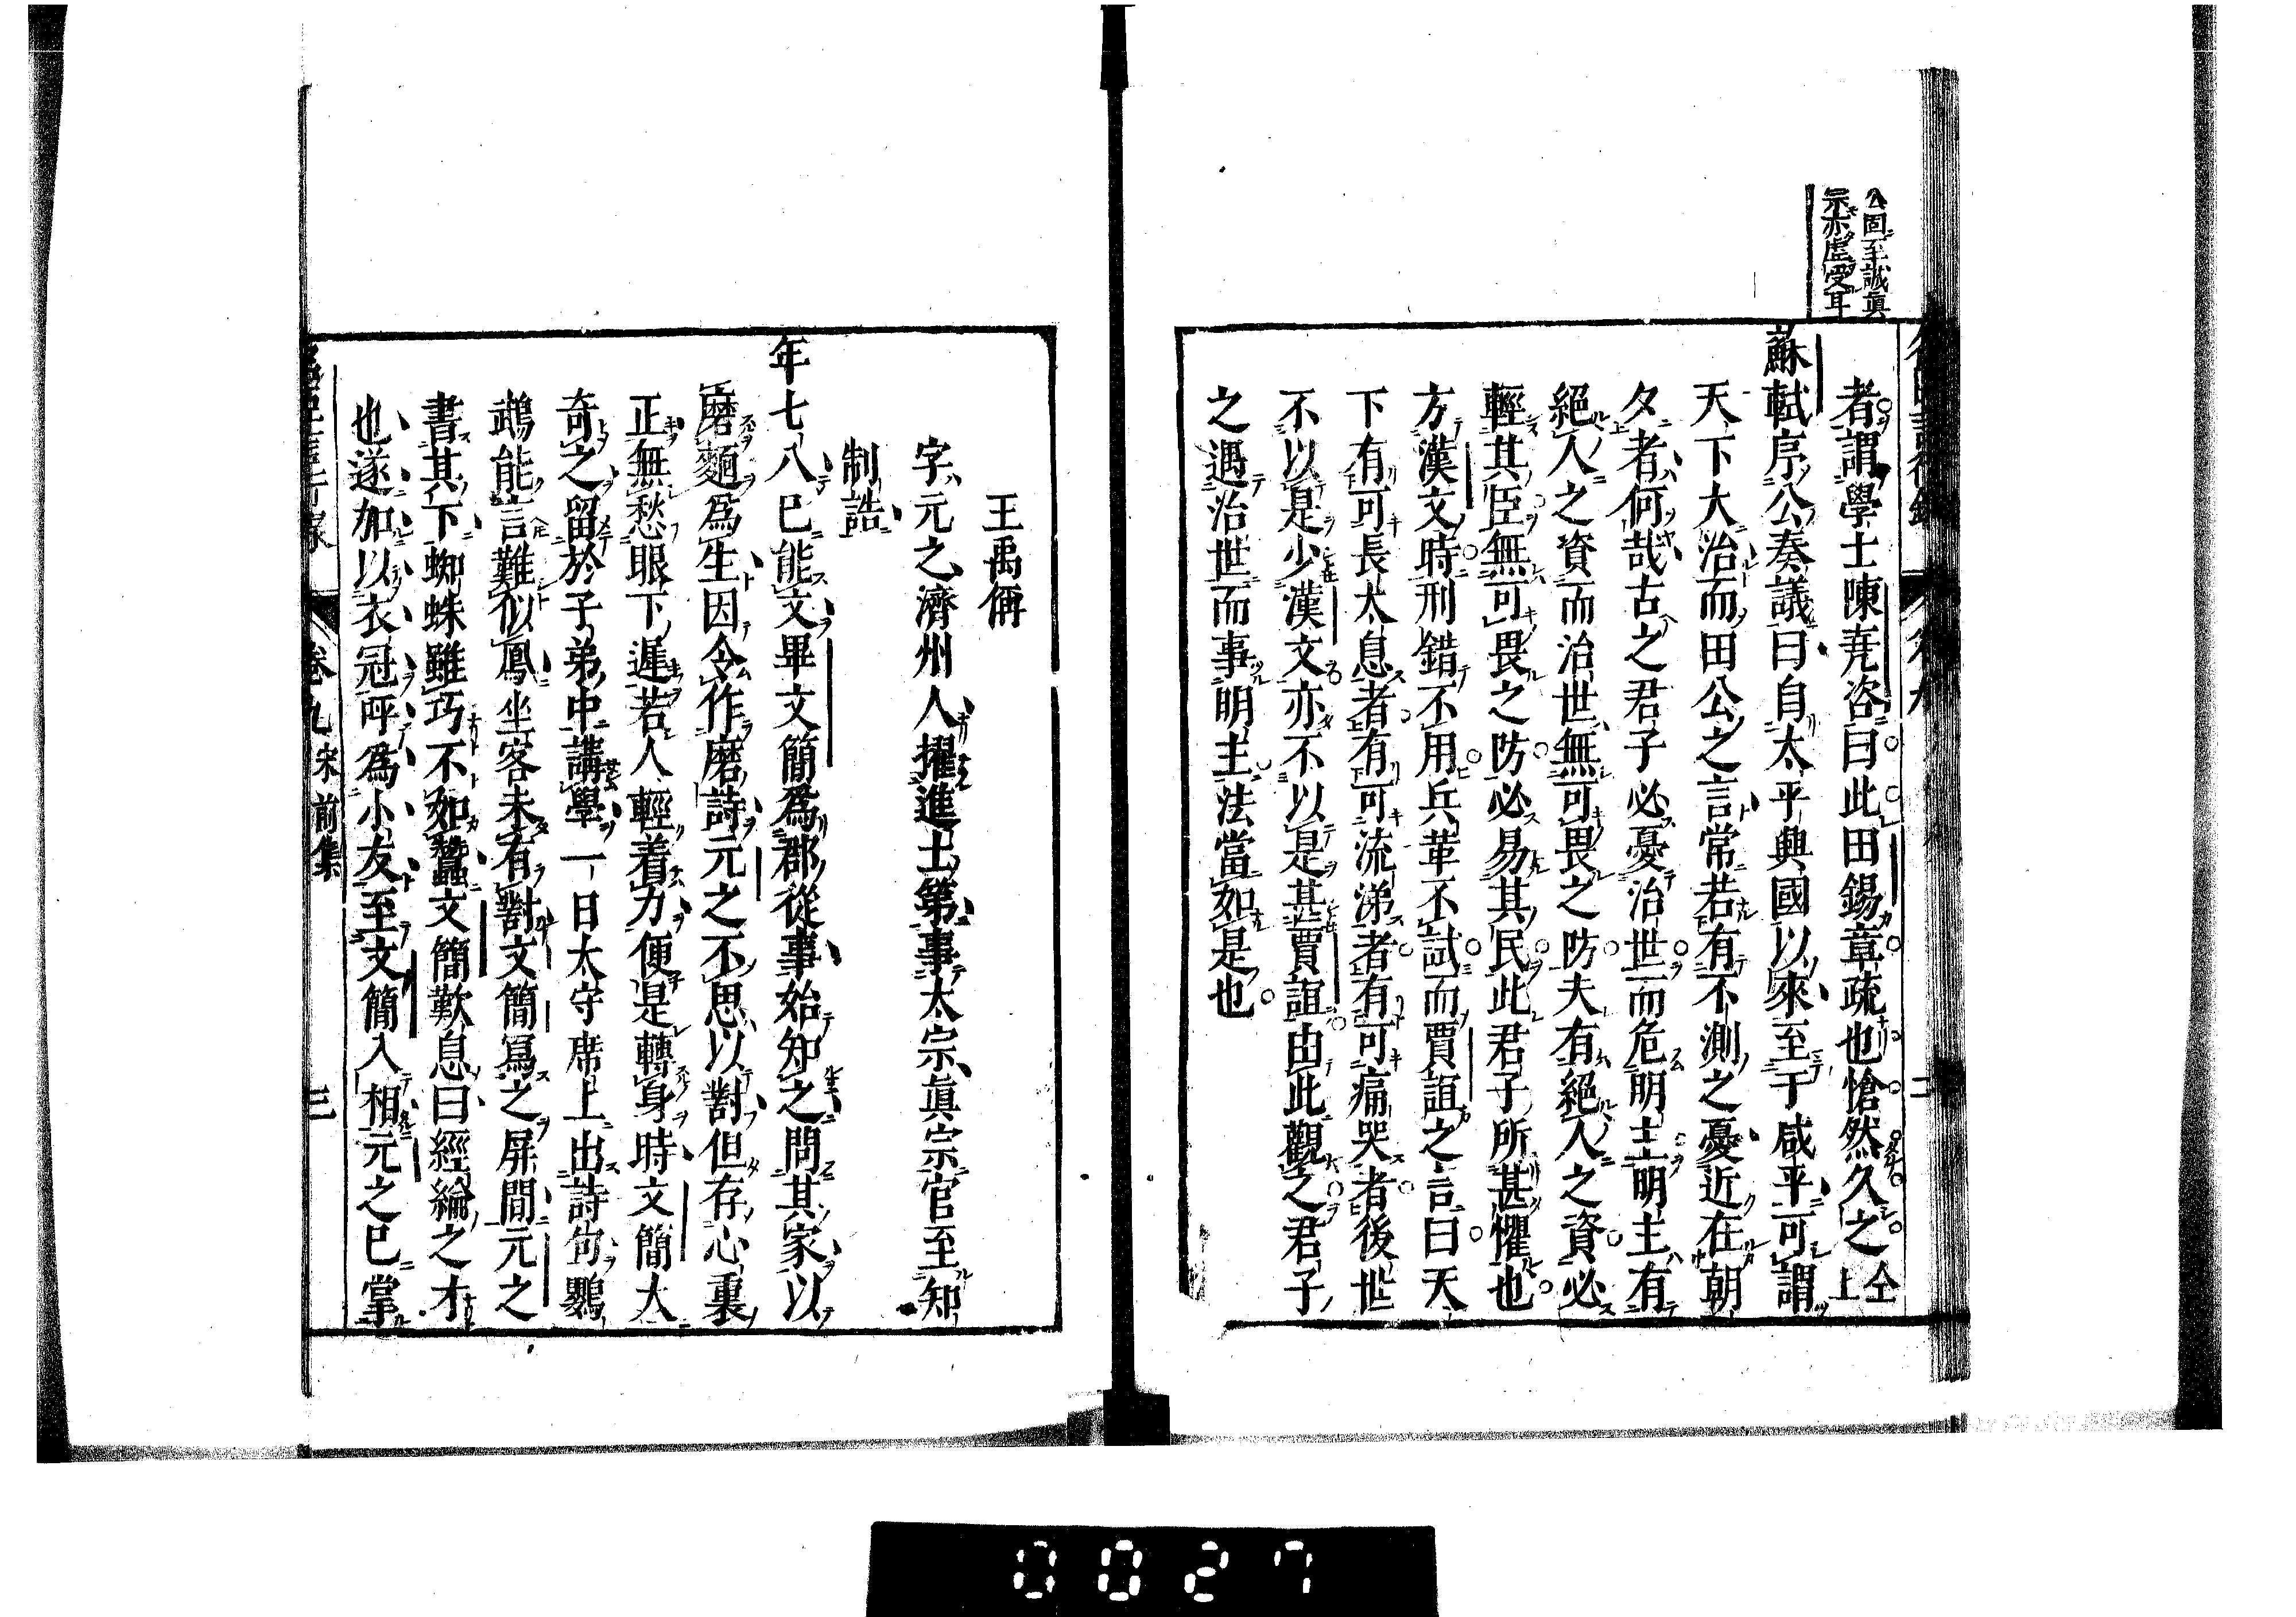 公固至誠眞
宗亦虛受耳
者謂學士陳堯咨曰此田錫章疏也愴然久之 仝上
蘇軾序公奏議曰自太平興國以來至于咸平可謂
天下大治而田公之言常若有不測之憂近在朝
夕者何哉古之君子必憂治世而危明主明主有
絕人之資而治世無可畏之防夫有絕人之資必
輕其臣無可畏之防必易其民此君子所甚懼也
方漢文時刑錯不用兵革不試而賈誼之言曰天
下有可長太息者有可流涕者有可痛哭者後世
不以是少漢文亦不以是甚賈誼由此觀之君子
之遇治世而事明主法當如是也
王禹偁
字元之濟州人擢進士第事太宗眞宗官至知
制誥
年七八已能文畢文簡爲郡從事始知之問其家以
磨麵爲生因令作磨詩元之不思以對但存心裏
正無愁眼下遲若人輕着力便是轉身時文簡大
奇之留於子弟中講學一日太守席上出詩句鸚
鵡能言難似鳳坐客未有對文簡寫之屏間元之
書其下蜘蛛雖巧不如蠶文簡歎息曰經綸之才
也遂加以衣冠呼爲小友至文簡入相元之已掌
卷九 宋前集 三
0027